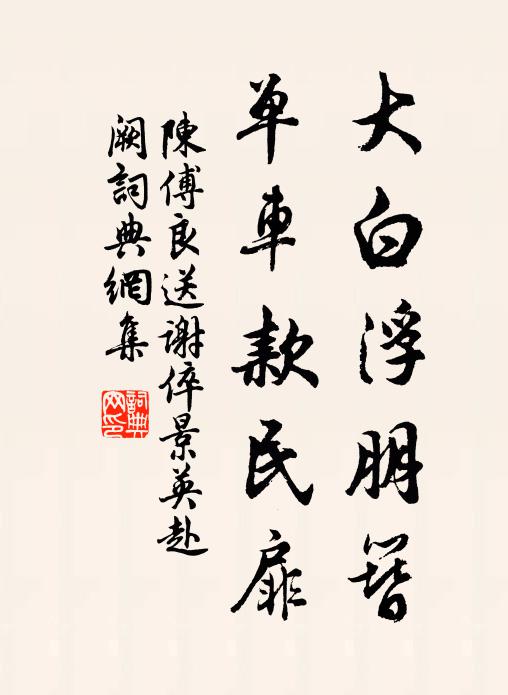 大白浮朋簪
單車款民扉
陳傅良送謝倅景英赴
闕詞典網集
詞典網印